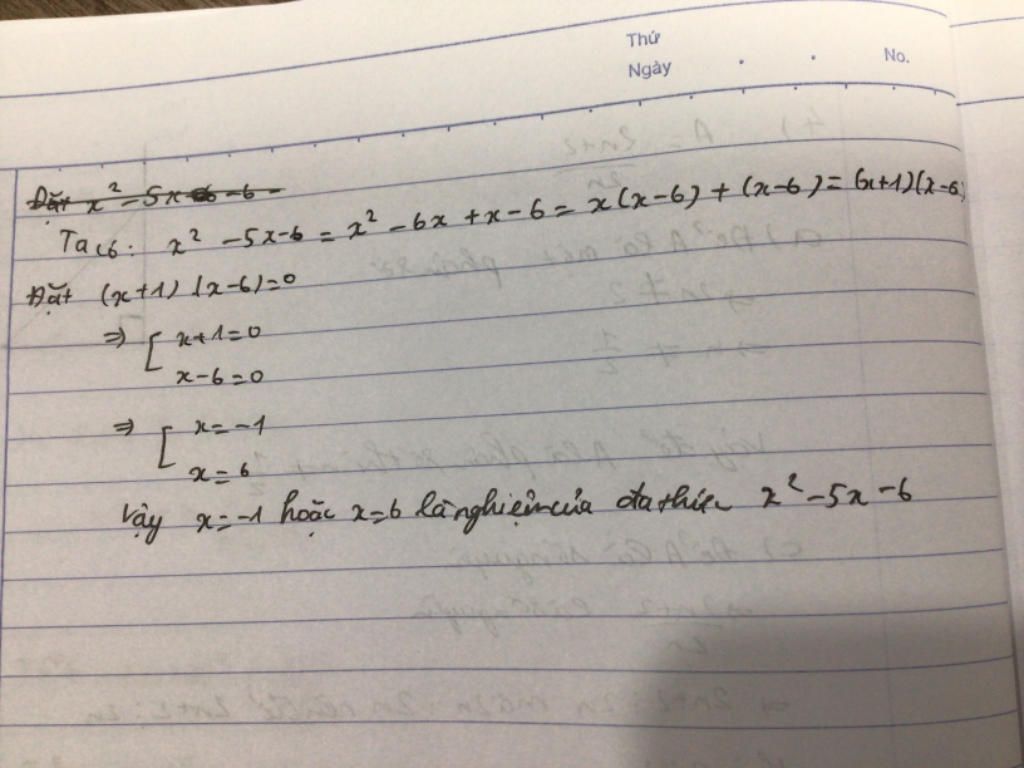 Thứ
Ngày
No.
Đặt x² - 5x - 6
Ta có: x² - 5x - 6 = x² - 6x + x - 6 = x(x-6) + (x-6) = (x+1)(x-6)
Đặt (x+1) (x-6) = 0
⇒ [ x+1=0
x-6=0
⇒ [ x = -1
x = 6
Vậy x = -1 hoặc x=6 là nghiệm của đa thức x² - 5x - 6